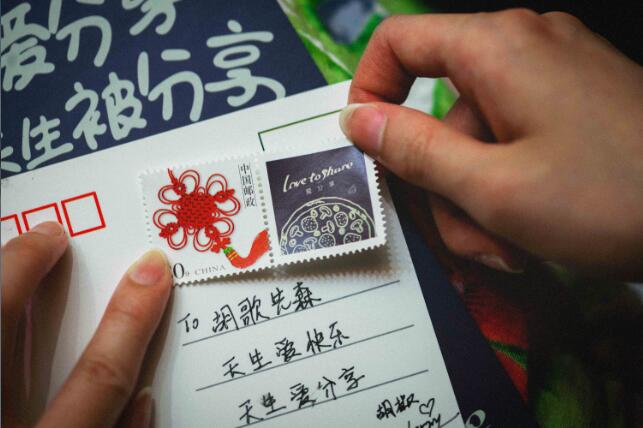 爱分享
天生被分享
中国邮政
Love to share
爱分享
0分 CHINA
To 胡歌先森
天生爱快乐
天生爱分享
胡椒♡